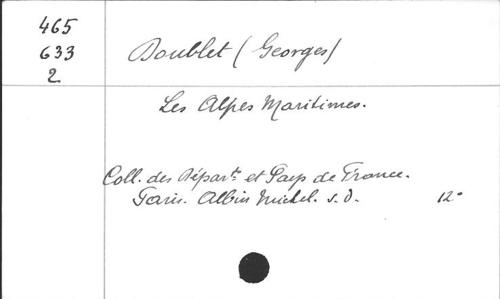 465
633
2
Doublet (Georges)
Les Alpes Maritimes.
Coll. des Départ.ts et Pays de France.
Paris. Albin Michel. s.d. 12°